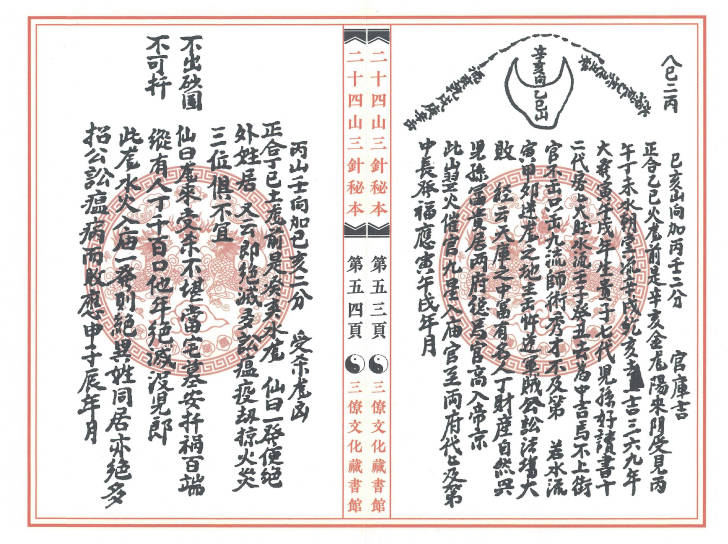 八巳二丙
辛亥向
乙巳山
巳亥山向加丙壬二分　官庫吉
正合乙巳火龍前是辛亥金龍陽來陰受見丙
午丁未水朝堂流辛戌乾亥
吉三六九年
大發寅午戌年生貴子七代兒孫好讀書十
二代房房大旺水流壬子癸丑去為中吉馬不上街
官不出口出九流師術秀才不及第　若水流
寅甲卯
之地
軍賊公訟法場大
敗　經云天庫之中富有名人丁財産自然興
兒孫富貴居兩府總為官高入帝京
此山
火催官九星入庙官至兩府代代及第
中長發福應寅午戌年月
二十四山三針秘本
第五三頁
三僚文化藏書館
二十四山三針秘本
第五四頁
三僚文化藏書館
丙山壬向加巳亥二分　受杀龍凶
正合丁巳土龍前是癸亥水龍　仙曰一發便絕
外姓居　又云即絕滅多訟瘟疫劫掠火災
三位俱不宜
仙曰龍來受杀不堪當宅墓安扦禍百端
縱有人丁千百口他年絕滅沒兒郎
此龍水火入庙一發則絕異姓同居亦絕多
招公訟瘟病而敗應申子辰年月
不出砂圖
不可扦